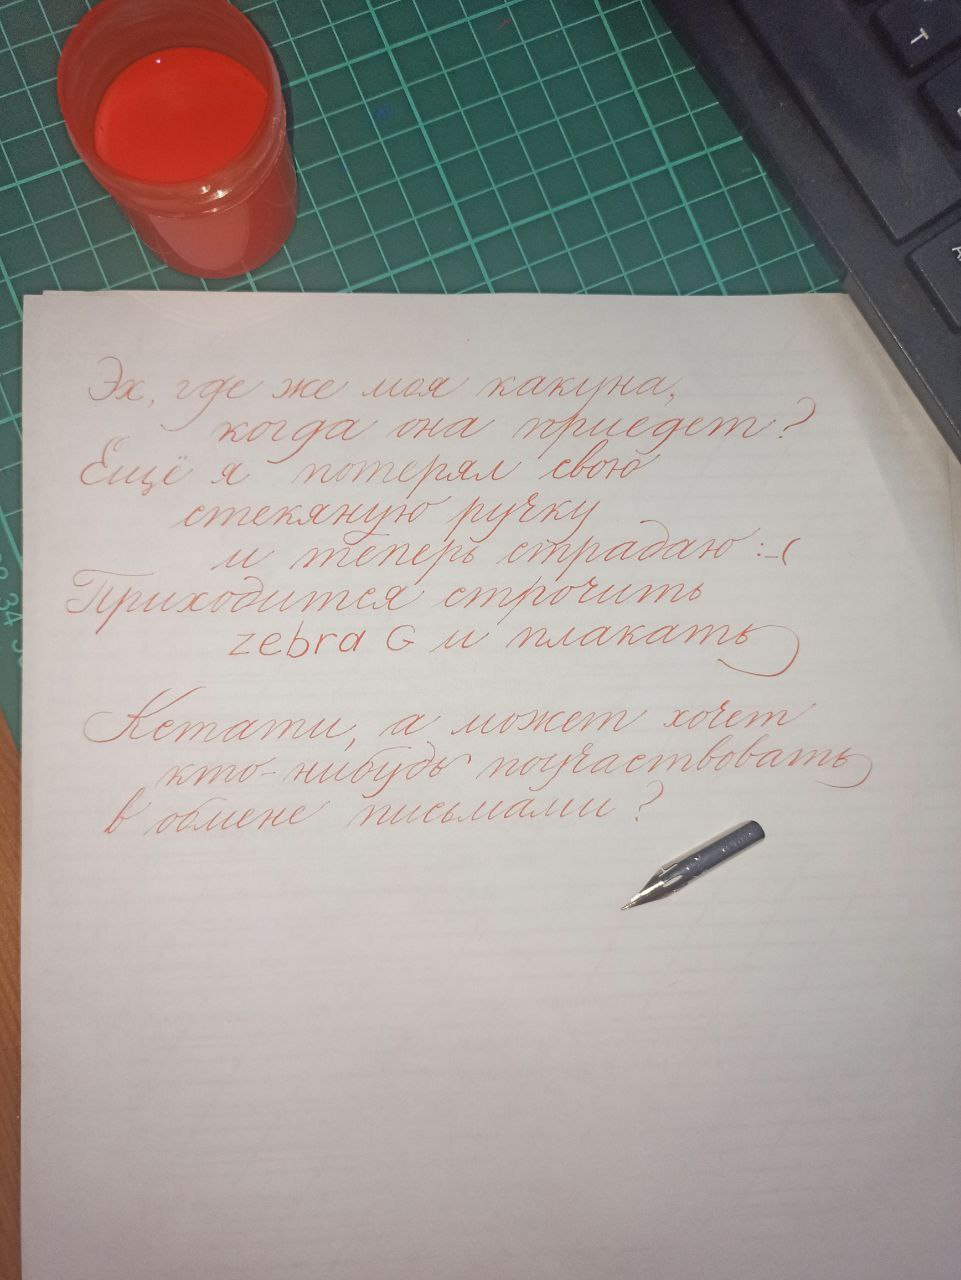 Эх, где же моя какуна,
когда она приедет?
Ещё я потерял свою
стекяную ручку
и теперь страдаю :-(
Приходится строчить
zebra G и плакать
Кстати, а может хочет
кто-нибудь поучаствовать
в обмене письмами?
T
A
34